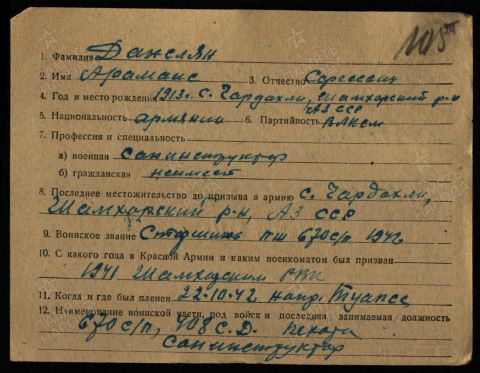 105
1. Фамилия Данелян
2. Имя Арамаис 3. Отчество
4. Год и место рождения 1913 г. с. Чардахли, Шамхорский р-н
АЗ ССР
5. Национальность армянин 6. Партийность ВЛКСМ
7. Профессия и специальность
а) военная санинструктор
б) гражданская неимеет
8. Последнее местожительство до призыва в армию с. Чардахли,
Шамхорский р-н, АЗ ССР
9. Воинское звание Старшина 670 с/п 1942
10. С какого года в Красной Армии и каким военкоматом был призван
1941 Шамхорским РВК
11. Когда и где был пленен 22-10-42 напр. Туапсе
12. Наименование воинской части, род войск и последняя занимаемая должность
670 с/п, 408 С.Д. пехота
санинструктор